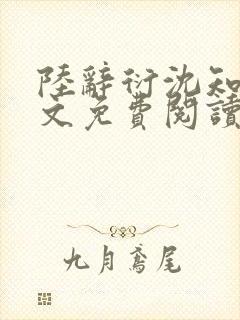 陸辭衍沈知
文免費閱讀
九月鳶尾